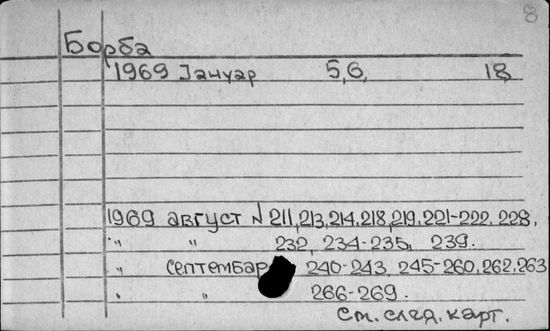 8
Борба
1969 Јануар 5,6, 18,
1969 август N 211,213,214,218,219,221-222,228,
" " 232, 234-235, 239.
" септембар 240-243, 245-260,262,263
" " 266-269.
См. след. карт.